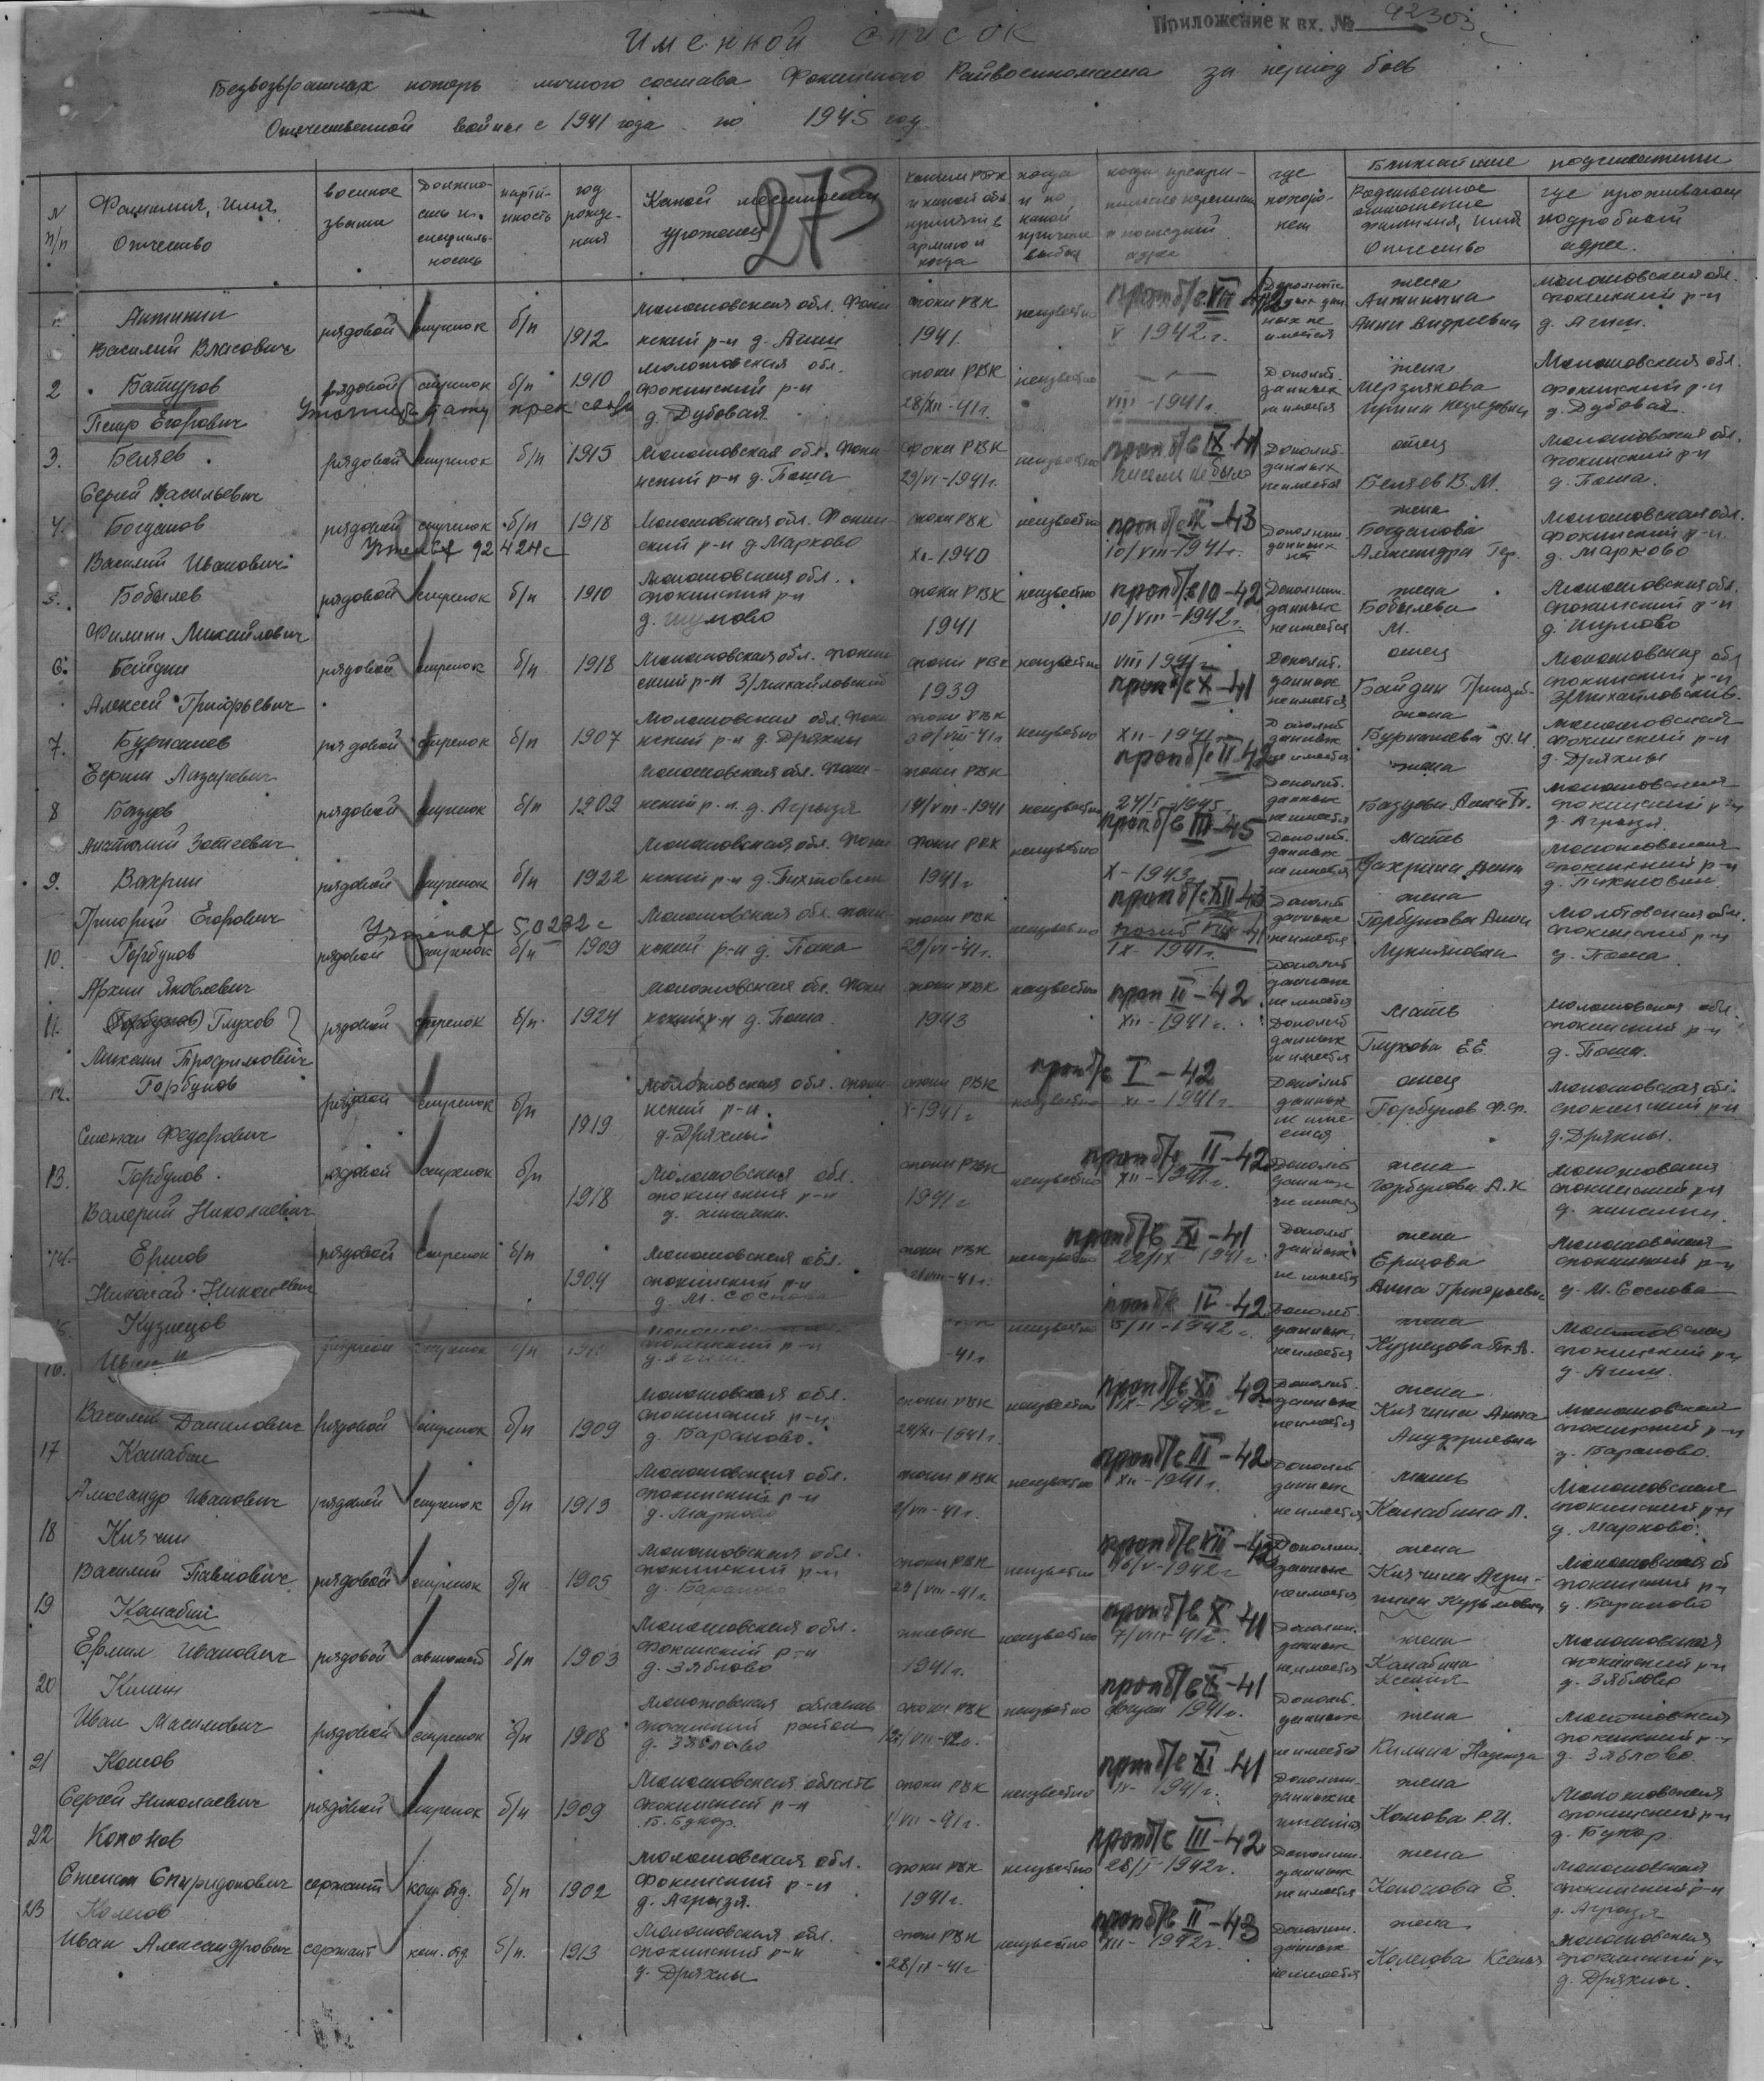 Приложение к вх. № 92303с
Именной список
Безвозвратных потерь личного состава Фокинского Райвоенкомата за период боев
Отечественной войны с 1941 года по 1945 год.
273
N п/п
Фамилия, Имя Отчество
военное звание
должность и специальность
партийность
год рождения
Какой местности уроженец
каким РВК и какой обл. призван в армию и когда
когда и по какой причине выбыл
когда прекратилась переписка и последний адрес
где похоронен
Ближайшие родственники
Родственное отношение фамилия, имя Отчество
где проживают подробный адрес.
Антипин Василий Власович рядовой стрелок б/п 1912 Молотовская обл. Фокинский р-н д. Агиш Фоки РВК 1941. неизвестно проп б/в VIII-42 V 1942 г. Дополнительных данных не имеется жена Антипина Анна Андреевна Молотовская обл. Фокинский р-н д. Агиш.
2 Батуров Петр Егорович рядовой стрелок б/п 1910 Молотовская обл. Фокинский р-н д. Дубовая Фоки РВК 28/XII-41г. неизвестно VIII-1941г. Дополнит. данных не имеется жена Мерзлякова Молотовская обл. Фокинский р-н д. Дубовая.
Уточнить дату прек связи
3. Беляев Сергей Васильевич рядовой стрелок б/п 1915 Молотовская обл. Фокинский р-н д. Поша Фоки РВК 29/VI-1941г. неизвестно проп б/в IX-41 писем не было Дополнит. данных не имеется отец Беляев В.М. Молотовская обл. Фокинский р-н д. Поша.
4. Богданов Василий Иванович рядовой стрелок б/п 1918 Молотовская обл. Фокинский р-н д. Марково Фоки РВК XI-1940 неизвестно проп б/в -43 10/VIII-1941г. Дополнит. данных нет жена Богданова Александра Гер. Молотовская обл. Фокинский р-н д. Марково
Учтен вх 92424с
5. Бобылев Филипп Михайлович рядовой стрелок б/п 1910 Молотовская обл. Фокинский р-н д. Шулково Фоки РВК 1941 неизвестно проп б/в 10-42 10/VIII-1942г. Дополнит. данных не имеется жена Бобылева М. Молотовская обл. Фокинский р-н
6. Байдин Алексей Григорьевич рядовой стрелок б/п 1918 Молотовская обл. Фокинский р-н З/Михайловский Фоки РВК 1939 неизвестно VIII 1941г проп б/в X-41 Дополнит. данных не имеется отец Байдин Григорий Молотовская обл Фокинский р-н З/Михайловский.
7. Бурнашев Ефим Лазаревич рядовой стрелок б/п 1907 Молотовская обл. Фокинский р-н д. Дряхлы Фоки РВК 30/VIII-41г неизвестно XII-1941г. проп б/в II-42 Дополнит данных не имеется жена Бурнашева Молотовская Фокинский р-н д. Дряхлы
8 Базуев Анатолий Зотеевич рядовой стрелок б/п 1909 Молотовская обл. Фокинский р-н. д. Агрызя Фоки РВК 14/VIII-1941 неизвестно 24/I-1945 проп б/в III-45 Дополнит. данных не имеется жена Базуева Анна Молотовская Фокинский р-н д. Агрызя.
9. Вахрин Григорий Егорович рядовой стрелок б/п 1922 Молотовская обл. Фокинский р-н д. Пихтовка Фоки РВК 1941г неизвестно X-1943г. проп б/в XII-43 Дополнит. данных не имеется мать Вахрина Анна Молотовская Фокинский р-н д. Пихтовка.
Учтен вх 50232с
10. Горбунов Архип Яковлевич рядовой стрелок б/п 1909 Молотовская обл. Фокинский р-н д. Поша Фоки РВК 29/VI-41г. неизвестно погиб VIII-41 IX-1941г. Дополнит данных не имеется жена Горбунова Анна Лукияновна Молотовская обл. Фокинский р-н д. Поша
11. (Горбунов) Глухов Михаил Трофимович рядовой стрелок б/п 1924 Молотовская обл. Фокинский р-н д. Поша Фоки РВК 1943 неизвестно проп II-42 XII-1941г. Дополнит данных не имеется мать Глухова Е.Е. Молотовская обл. Фокинский р-н д. Поша.
12. Горбунов Степан Федорович рядовой стрелок б/п 1919 Молотовская обл. Фокинский р-н. д. Дряхлы Фоки РВК X-1941г неизвестно проп б/в I-42 XI-1941г. Дополнит данных не имеется отец Горбунов Ф.Ф. Молотовская обл. Фокинский р-н д. Дряхлы.
13. Горбунов Валерий Николаевич рядовой стрелок б/п 1918 Молотовская обл. Фокинский р-н Фоки РВК 1941г неизвестно проп б/в II-42 XII-1941г. Дополнит данных не имеется жена Горбунова А.К Молотовская Фокинский р-н
14. Ершов Николай Николаевич рядовой стрелок б/п 1904 Молотовская обл. Фокинский р-н д. М. Соснова Фоки РВК VIII-41г. неизвестно проп б/в XI-41 22/IX-1941г Дополнит данных не имеется жена Ершова Анна Григорьевна Молотовская Фокинский р-н д. М. Соснова
15. Кузнецов рядовой стрелок б/п Фокинский р-н д. Агиш -41г неизвестно проп б/в IV-42 15/II-1942г. Дополнит данных не имеется жена Кузнецова Молотовская Фокинский р-н д. Агиш
16. Василий Данилович рядовой стрелок б/п 1909 Молотовская обл. Фокинский р-н д. Бараново. Фоки РВК 24/XI-1941г. неизвестно проп б/в XI 42 IX-1942г Дополнит. данных не имеется жена Кичина Анна Андреевна Молотовская Фокинский р-н д. Бараново.
17 Канабин Александр Иванович рядовой стрелок б/п 1913 Молотовская обл. Фокинский р-н д. Марково Фоки РВК 2/VIII-41г. неизвестно проп б/в II-42 XII-1941г. Дополнит данных не имеется мать Канабина Молотовская Фокинский р-н д. Марково.
18 Кичин Василий Павлович рядовой стрелок б/п 1905 Молотовская обл. Фокинский р-н д. Бараново Фоки РВК 29/VIII-41г. неизвестно проп б/в VII-42 16/V-1942г Дополнит. данных не имеется жена Кичина Кузьмовна Молотовская об Фокинский р-н д. Бараново
19 Канабин Ефим Иванович рядовой автомат б/п 1903 Молотовская обл. Фокинский р-н д. Зяблово Ижевск 1941г. неизвестно проп б/в X 41 7/VIII-41г. Дополнит. данных не имеется жена Канабина Ксения Молотовская Фокинский р-н д. Зяблово
20 Килин Иван Масимович рядовой стрелок б/п 1908 Молотовская область Фокинский район д. Зяблово Фоки РВК неизвестно проп б/в -41 август 1941г. Дополнит. данных не имеется жена Килина Надежда Молотовская Фокинский р-н д. Зяблово.
21 Комов Сергей Николаевич рядовой стрелок б/п 1909 Молотовская область Фокинский р-н Б. Букор. Фоки РВК VII-41г. неизвестно проп б/в XI 41 IX-1941г. Дополнит. данных не имеется жена Комова Р.И. Молотовская Фокинский р-н д. Букор.
22 Копонов Степан Спиридонович сержант ком. отд. б/п 1902 Молотовская обл. Фокинский р-н д. Агрызя. Фоки РВК 1941г. неизвестно проп б/в III-42 28/I-1942г. Дополнит. данных не имеется жена Копонова Е. Молотовская Фокинский р-н д. Агрызя
23 Колегов Иван Александрович сержант ком. отд. б/п. 1913 Молотовская обл. Фокинский р-н д. Дряхлы Фоки РВК 28/IX-41г неизвестно проп б/в II-43 XII-1942г. Дополнит. данных не имеется жена Колегова Ксенья Молотовская Фокинский р-н д. Дряхлы.